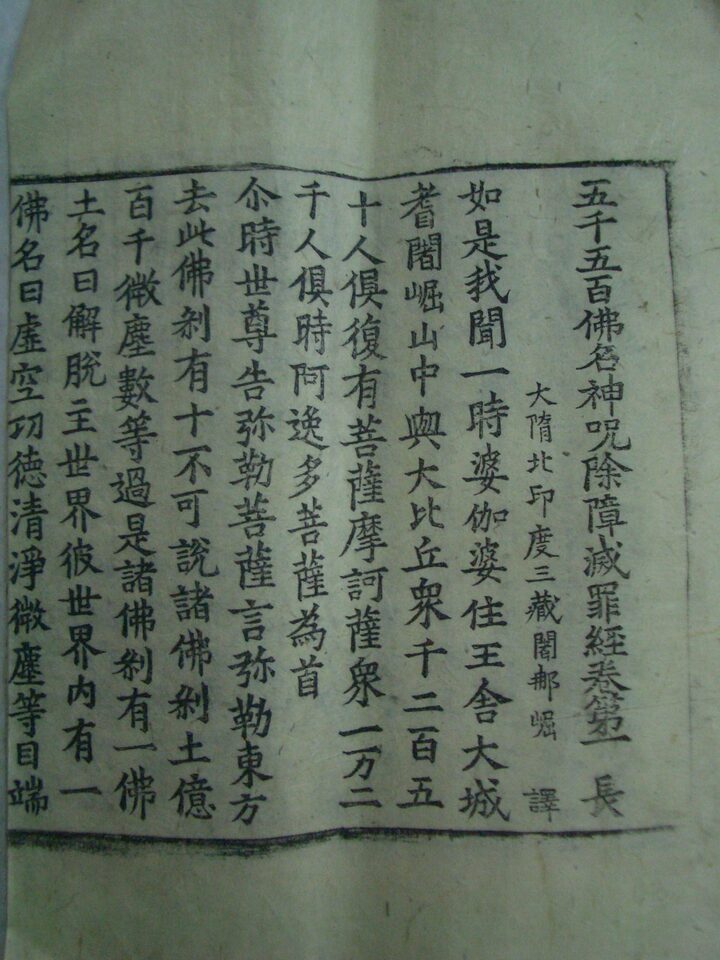 五千五百佛名神呪除障滅罪經卷第一 長
大隋北印度三藏闍那崛 譯
如是我聞一時婆伽婆住王舍大城
耆闍崛山中與大比丘衆千二百五
十人俱復有菩薩摩訶薩衆一万二
千人俱時阿逸多菩薩為首
尒時世尊告弥勒菩薩言弥勒東方
去此佛刹有十不可說諸佛刹土億
百千微塵數等過是諸佛刹有一佛
土名曰解脫主世界彼世界内有一
佛名曰虛空功德清淨微塵等目端